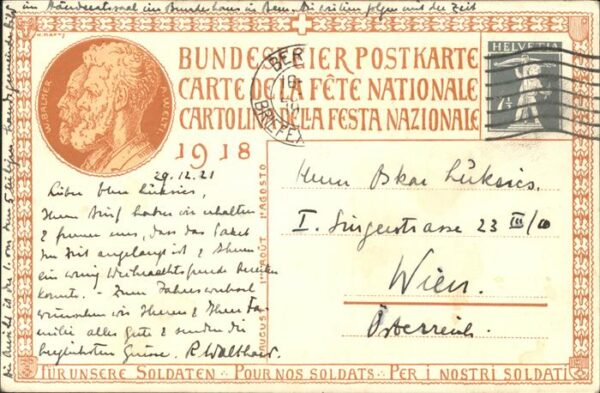 im Ständeratssaal im Bundeshaus in Bern. Die weiteren folgen mit der Zeit
BUNDESFEIERPOSTKARTE
CARTE DE LA FÊTE NATIONALE
CARTOLINA DELLA FESTA NAZIONALE
1918
HELVETIA
7½
BER
BRIEF
W. BALMER
A. WELTI
AUGUST 1ER AOÛT 1° AGOSTO
29.12.21
Lieber Herr Luksics,
Ihren Brief haben wir erhalten
& freuen uns, dass das Paket
zur Zeit angelangt ist & Ihnen
ein wenig Weihnachtsfreude bereiten
konnte. - Zum Jahreswechsel
wünschen wir Ihnen & Ihrer Fa-
milie alles Gute & senden die
herzlichsten Grüsse. R. Walthard
Herrn Oskar Luksics.
I. Singerstrasse 23 III/10
Wien.
Österreich.
FÜR UNSERE SOLDATEN · POUR NOS SOLDATS · PER I NOSTRI SOLDATI